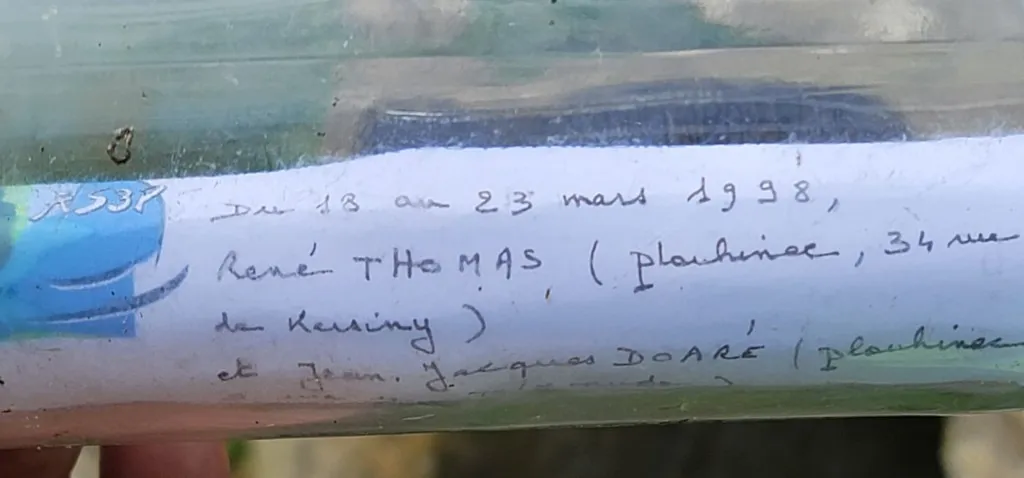 Du 18 au 23 mars 1998,
René THOMAS ( plouhinec, 34 rue
de Kersiny )
et Jean. Jacques DOARÉ ( plouhinec